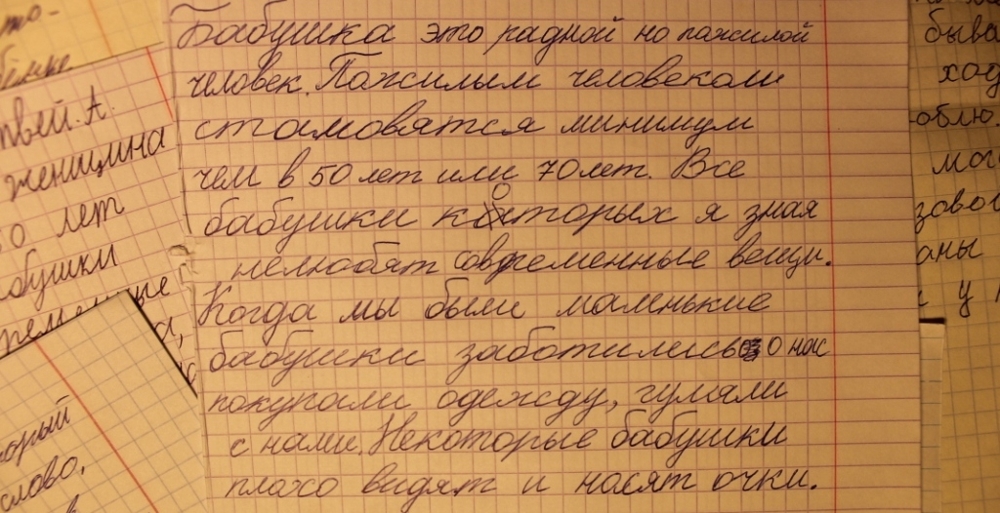 то-
Бабушка это радной но пажилой
человек. Пажилым человекам
становятся минимум
чем в 50 лет или 70 лет. Все
бабушки которых я зная
нелюбят современные вещи.
Когда мы были маленькие
бабушки заботились о нас
покупали одежду, гуляли
с нами. Некоторые бабушки
плахо видят и насят очки.
твей. А.
женщина
50 лет
бушки
орый
слово,
быва
ход
облю
мог
аны
у